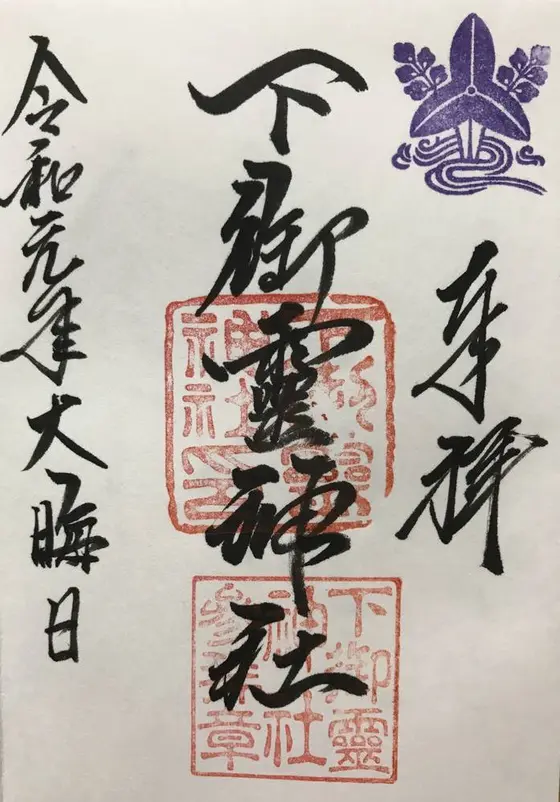 奉拝
下御靈神社
令和元年大晦日
下御靈
神社印
下御靈
神社
參拜章